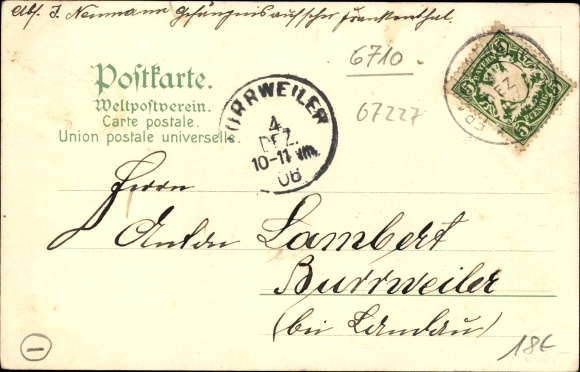 Abs. J. Neumann Gefängnisaufseher Frankenthal.
6710
67227
Postkarte.
Weltpostverein.
Carte postale.
Union postale universelle.
BURRWEILER
4
DEZ.
10-11 Vm.
06
BAYERN
5
5
5
5
PFENNIG
Herrn
Anton Lambert
Burrweiler
(bei Landau)
1
18€